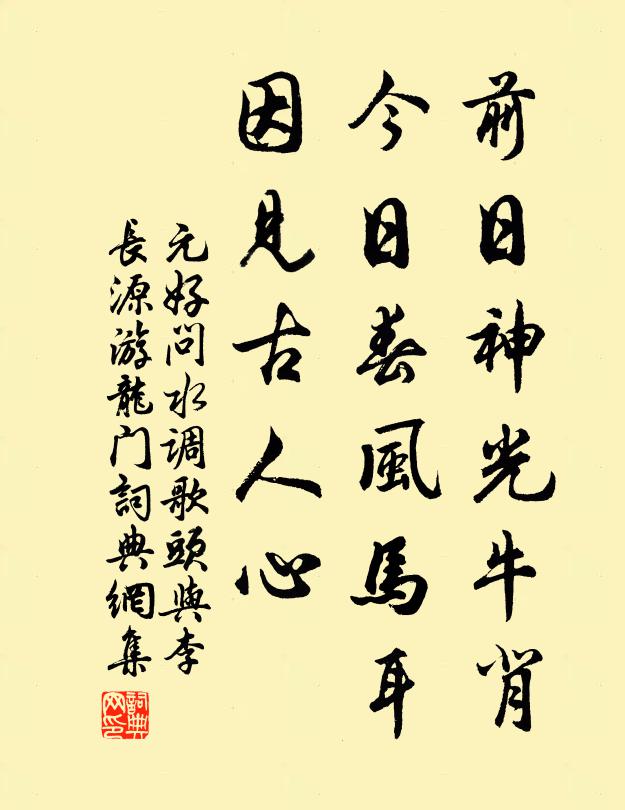 前日神光牛背
今日春風馬耳
因見古人心
元好问水调歌頭與李
長源游龍门詞典網集
詞典网印